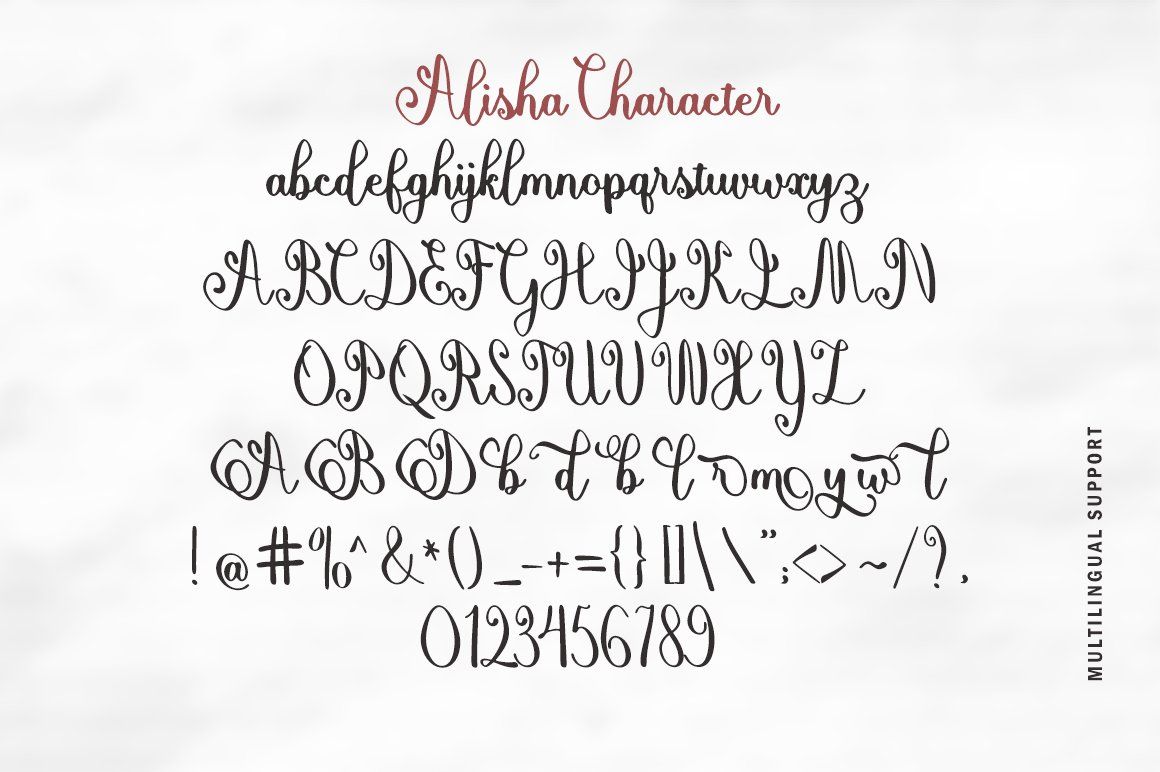 Alisha Character
abcdefghijklmnopqrstuvwxyz
ABCDEFGHIJKLMN
OPQRSTUVWXYZ
A B D b d b l r m y w t
! @ # % ^ & * ( ) _ - + = { } [ ] | \ " ; < > ~ / ? ,
0123456789
MULTILINGUAL SUPPORT